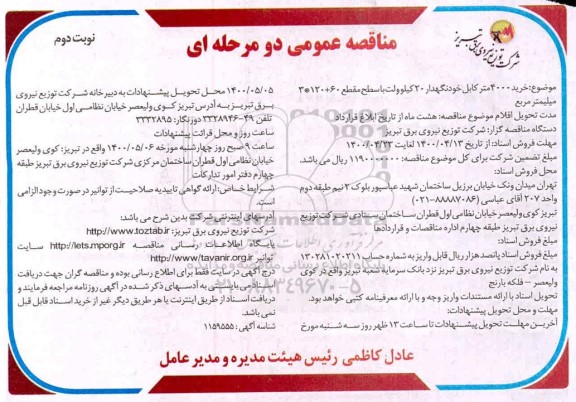 نوبت دوم
مناقصه عمومی دو مرحله ای
شرکت توزیع نیروی برق تبریز
موضوع:خرید ۴۰۰۰ متر کابل خودنگهدار ۲۰ کیلوولت با سطح مقطع ۶۰+۱۲۰*۳
میلیمتر مربع
مدت تحویل اقلام موضوع مناقصه: هشت ماه از تاریخ ابلاغ قرارداد
دستگاه مناقصه گزار: شرکت توزیع نیروی برق تبریز
مهلت فروش اسناد: از تاریخ ۱۴۰۰/۰۴/۱۳ لغایت ۱۴۰۰/۰۴/۲۳
مبلغ تضمین شرکت برای کل موضوع مناقصه: ریال می باشد.
محل فروش اسناد:
تهران میدان ونک خیابان برزیل ساختمان شهید عباسپور بلوک ۲ نیم طبقه دوم
واحد ۲۰۷ آقای عباسی (۸۸۸۸۷۰۸۶-۰۲۱)
تبریز کوی ولیعصر خیابان نظامی اول قطران ساختمان ستادی شرکت توزیع
نیروی برق تبریز طبقه چهارم اداره مناقصات و قراردادها
مبلغ فروش اسناد:
مبلغ فروش اسناد پانصد هزار ریال قابل واریز به شماره حساب ۱۳۰۲۸۱۰۲۰۳۱۱
به نام شرکت توزیع نیروی برق تبریز نزد بانک سرمایه شعبه تبریز واقع در کوی
ولیعصر – فلکه بارنج
تحویل اسناد با ارائه مستندات واریز وجه و با ارائه معرفینامه کتبی خواهد بود.
مهلت و محل تحویل پیشنهادات:
آخرین مهلت تحویل پیشنهادات تا ساعت ۱۳ ظهر روز سه شنبه مورخ
۱۴۰۰/۰۵/۰۵ محل تحویل پیشنهادات به دبیرخانه شرکت توزیع نیروی
برق تبریز به آدرس تبریز کوی ولیعصر خیابان نظامی اول خیابان قطران
تلفن ۴۹-۳۳۲۸۹۴۶ دورنگار: ۳۳۳۲۸۹۵
ساعت روز و محل قرائت پیشنهادات
ساعت ۹ صبح روز چهارشنبه مورخه ۱۴۰۰/۰۵/۰۶ واقع در تبریز: کوی ولیعصر
خیابان نظامی اول قطران ساختمان مرکزی شرکت توزیع نیروی برق تبریز طبقه
چهارم دفتر امور تدارکات
شرایط خاص: ارائه گواهی تاییدیه صلاحیت از توانیر در صورت وجود الزامی
است.
آدرسهای اینترنتی شرکت بدین شرح می باشد:
شرکت توزیع نیروی برق تبریز: http://www.toztab.ir
پایگاه اطلاعات رسانی مناقصه http://iets.mporg.ir سایت
توانیر http://www.tavanir.org.ir
درج آگهی در سایت فقط برای اطلاع رسانی بوده و مناقصه گران جهت دریافت
اسناد می بایستی به آدسهای ذکر شده در آگهی روزنامه مراجعه فرمایند و
دریافت اسناد از طریق اینترنت یا هر طریق دیگر غیر از خرید اسناد قابل قبل
نمی باشد.
شناسه آگهی : 1159555
عادل کاظمی رئیس هیئت مدیره و مدیر عامل